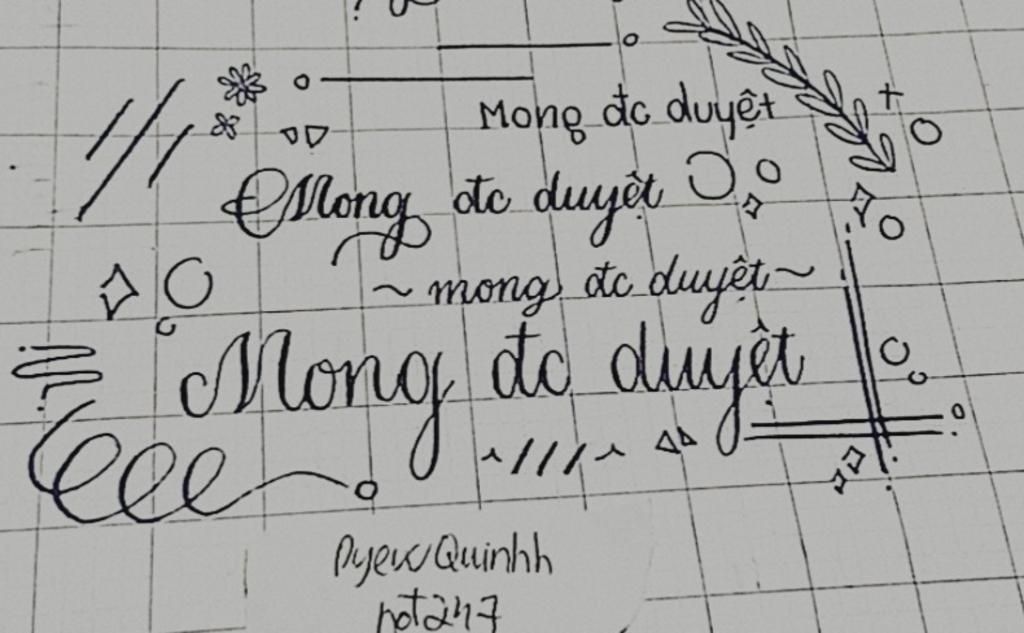 Mong đc duyệt
Mong đc duyệt
~ mong đc duyệt ~
Mong đc duyệt
not247